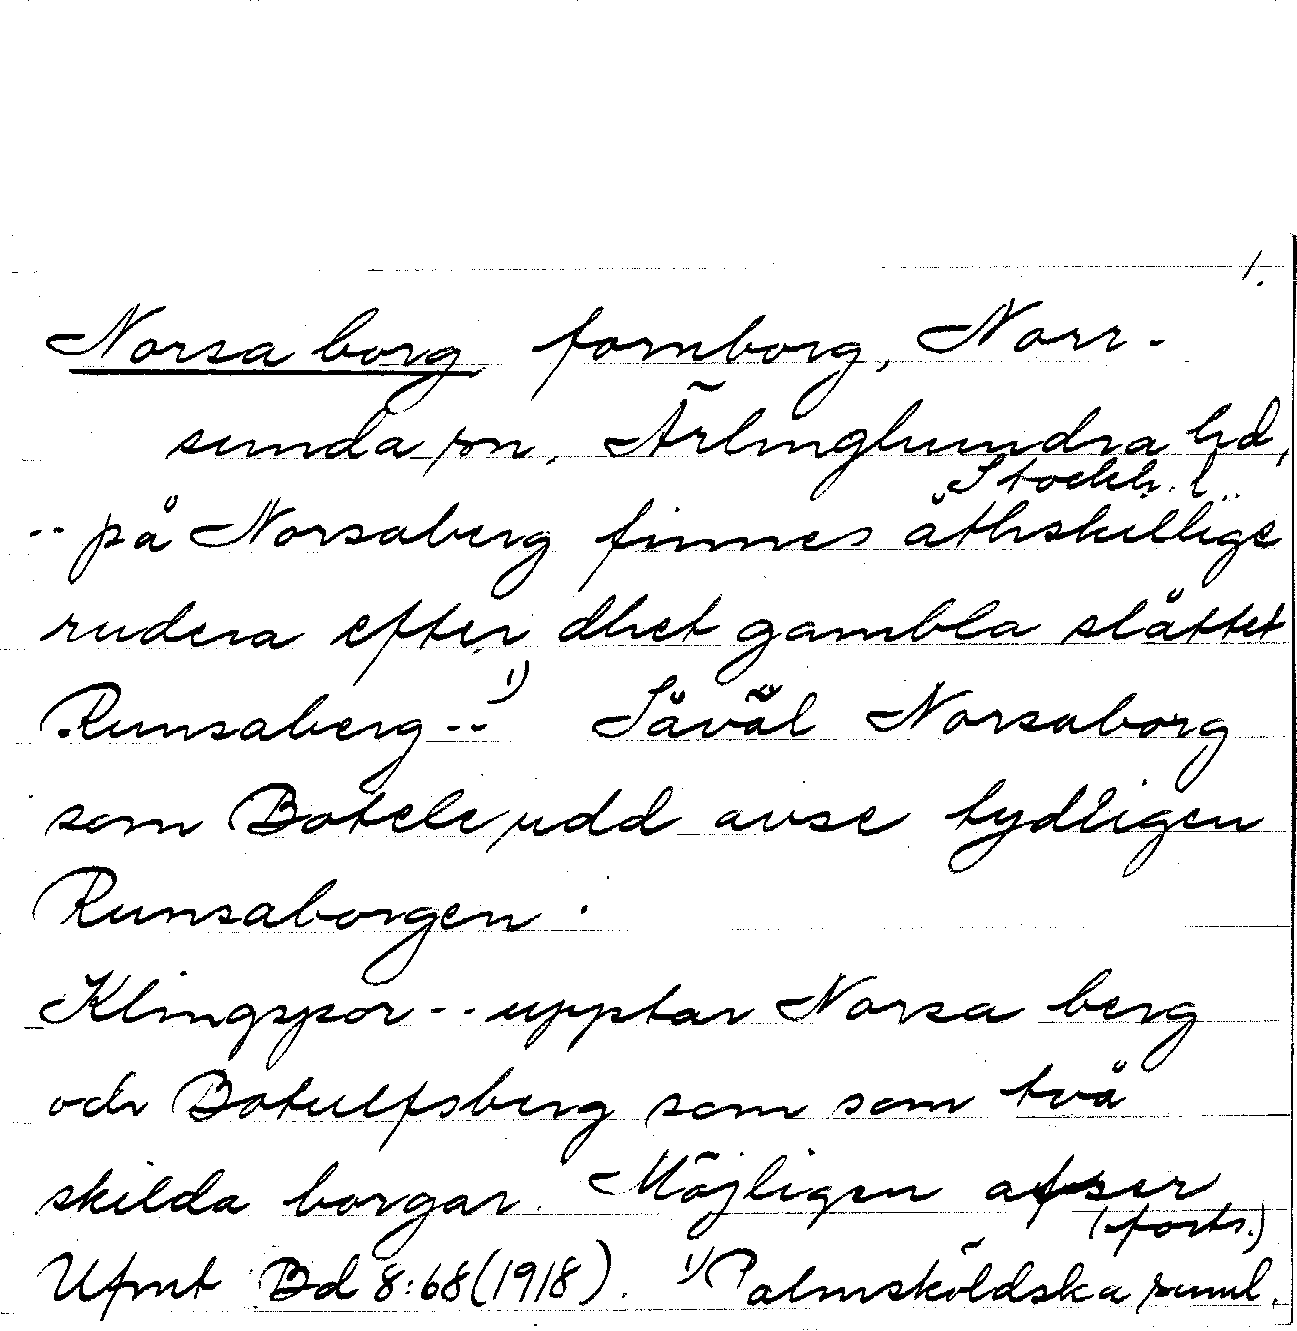 1.
Norsa borg fornborg, Norr-
sunda sn, Ärlinghundra hd,
Stockh. l.
-- på Norsaberg finnes åthskillige
rudera efter dhet gambla slåttet
Runsaberg --1) Såväl Norsaborg
som Botele udd avse tydligen
Runsaborgen.
Klingspor -- upptar Norsa berg
och Botulfsberg som som två
skilda borgar. Möjligen afser
(forts.)
Ufmt Bd 8:68 (1918). 1) Palmsköldska saml.